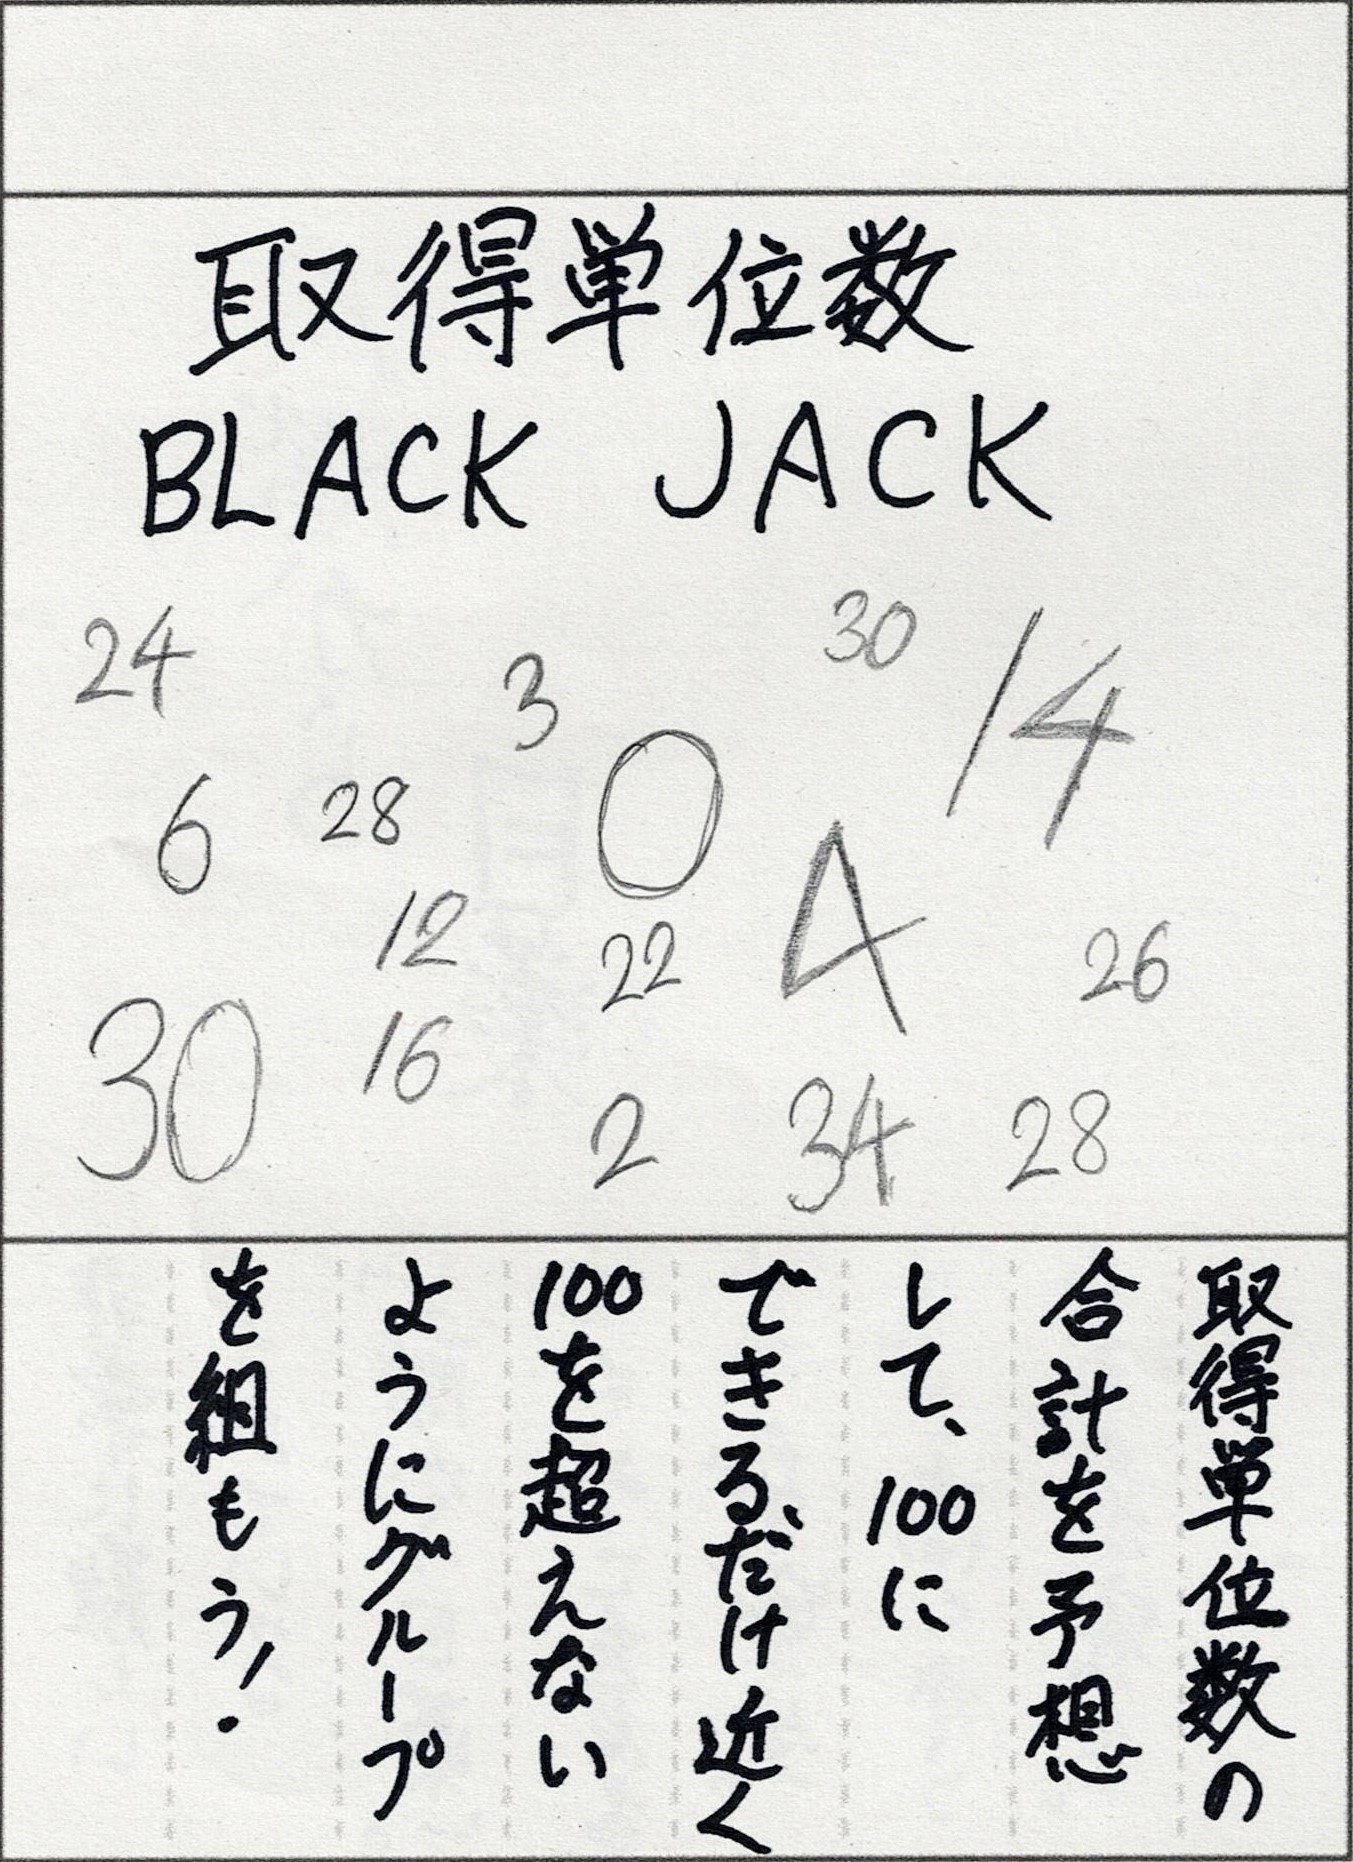 取得単位数
BLACK JACK
24
3
30
14
6
28
0
12
22
4
26
30
16
2
34
28
取得単位数の
合計を予想
して、100に
できるだけ近く
100を超えない
ようにグループ
を組もう！